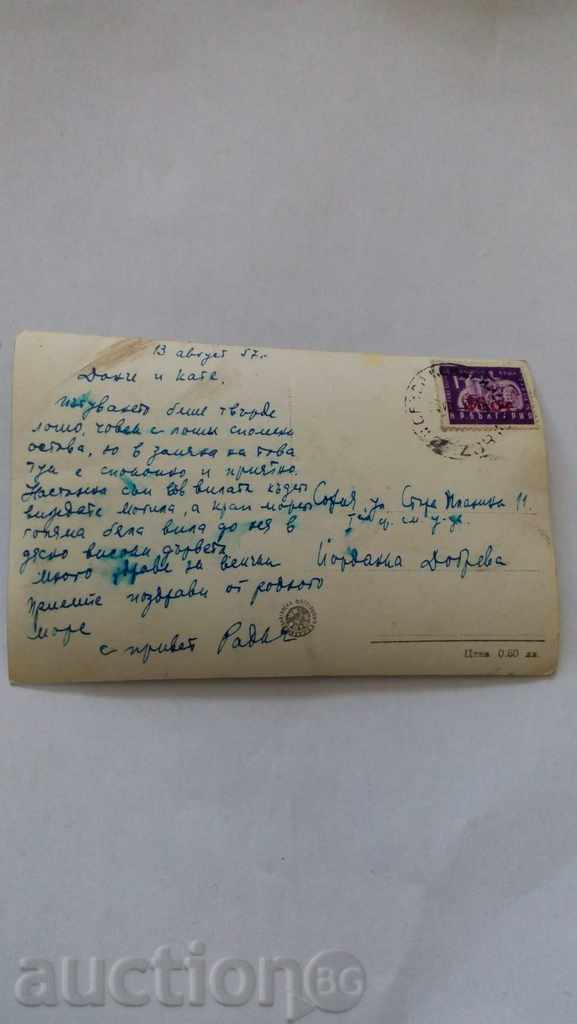 13 август 57 г.
Данче и Кате,
пътуването беше твърде
лошо, човек с лоши спомени
остава, но в замяна на това
тук е спокойно и приятно.
Настанка съм във вилата където
виждате могила, а край морето
голяма бяла вила до нея в
дясно високи дървета
Много здраве на всички
Приемете поздрави от родното
море
с привет
София, ул. Стара Планина 11.
Йорданка Добрева
Цена 0.60 лв.
auction BG